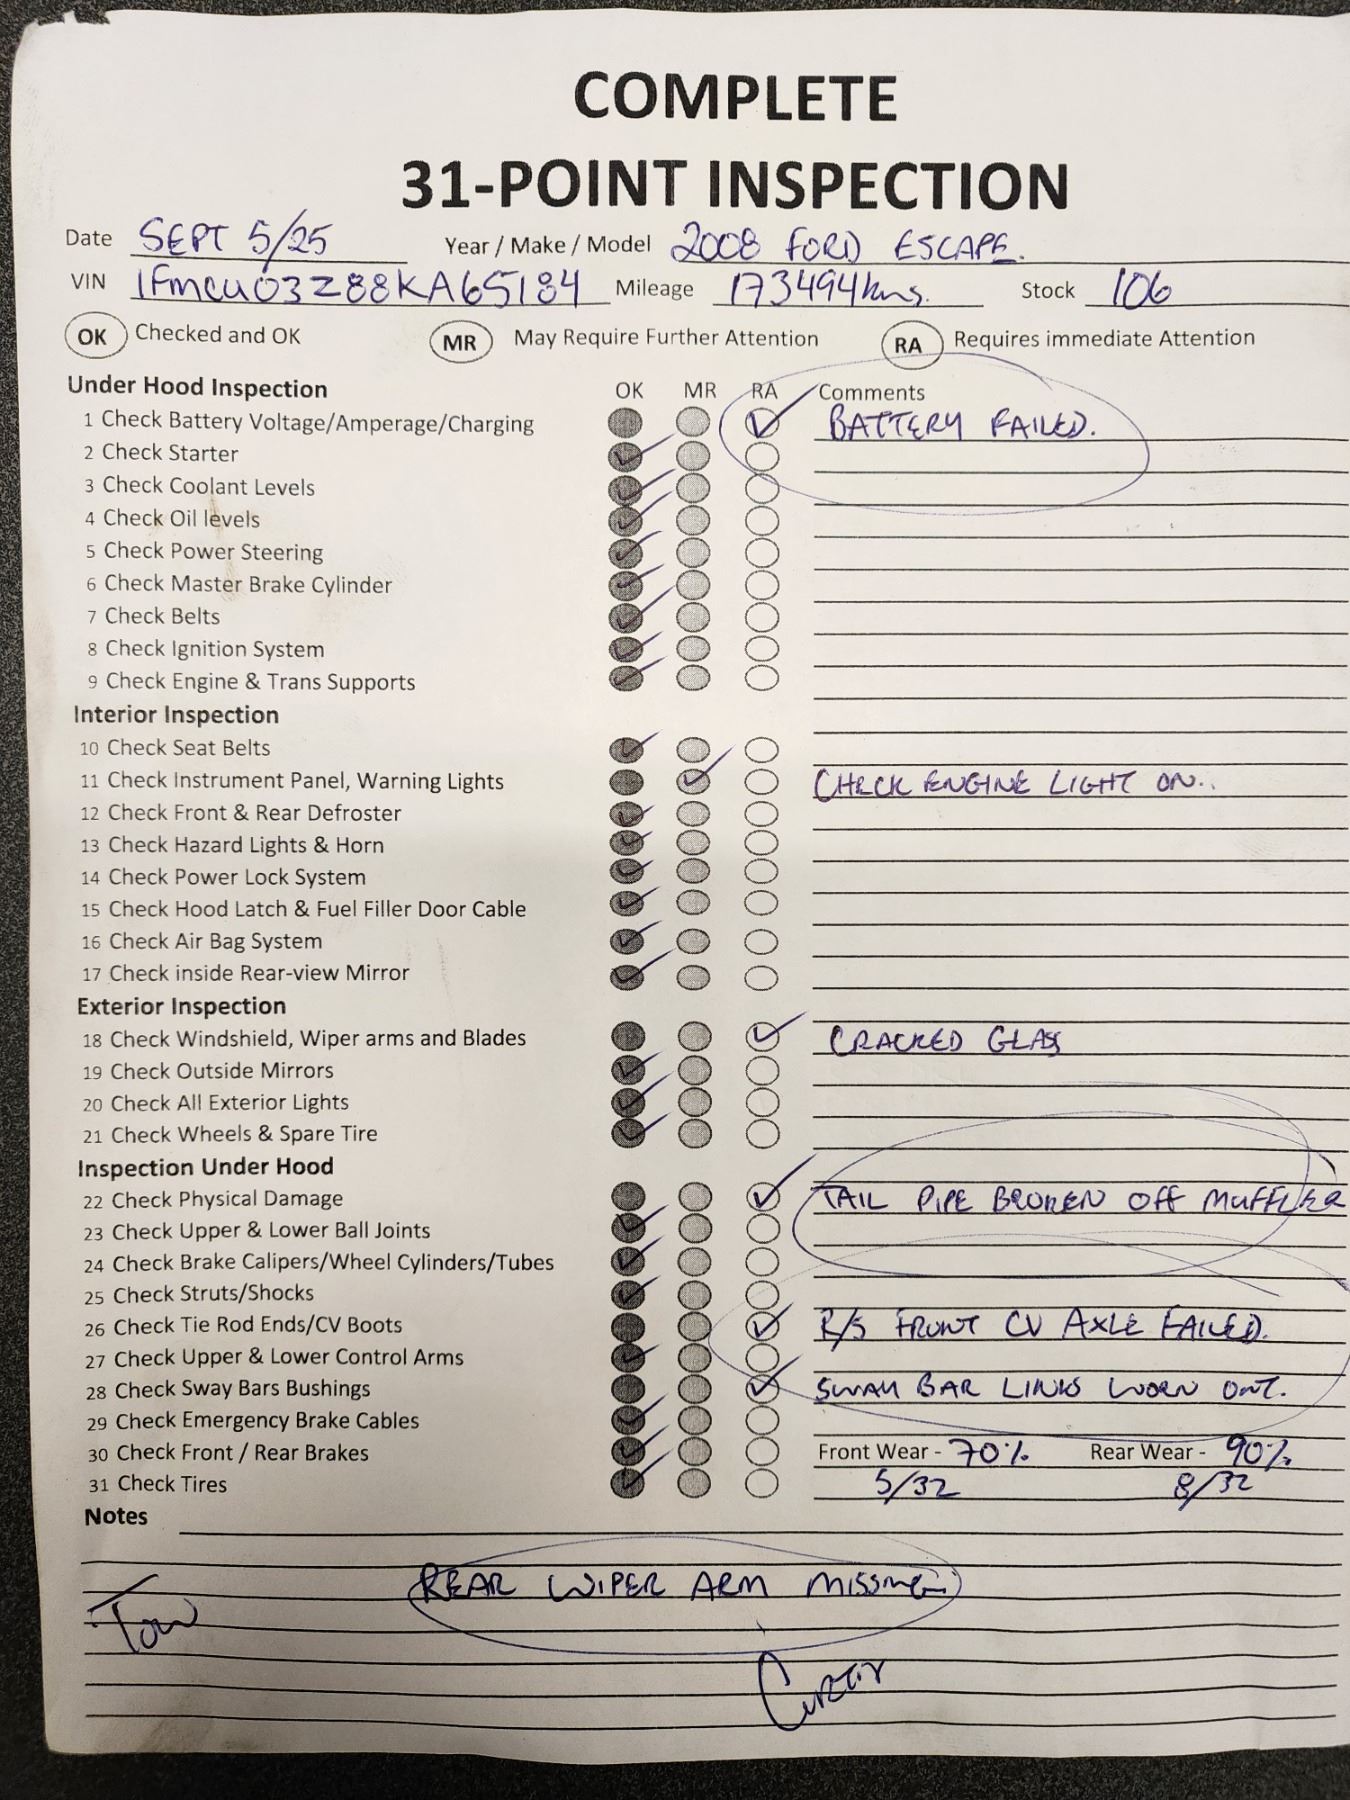 COMPLETE
31-POINT INSPECTION
Date SEPT 5/25 Year / Make / Model 2008 FORD ESCAPE.
VIN 1FMCU03Z88KA65184 Mileage 173494kms. Stock 106
OK Checked and OK MR May Require Further Attention RA Requires immediate Attention
Under Hood Inspection OK MR RA Comments
1 Check Battery Voltage/Amperage/Charging BATTERY FAILED.
2 Check Starter
3 Check Coolant Levels
4 Check Oil levels
5 Check Power Steering
6 Check Master Brake Cylinder
7 Check Belts
8 Check Ignition System
9 Check Engine & Trans Supports
Interior Inspection
10 Check Seat Belts
11 Check Instrument Panel, Warning Lights CHECK ENGINE LIGHT ON..
12 Check Front & Rear Defroster
13 Check Hazard Lights & Horn
14 Check Power Lock System
15 Check Hood Latch & Fuel Filler Door Cable
16 Check Air Bag System
17 Check inside Rear-view Mirror
Exterior Inspection
18 Check Windshield, Wiper arms and Blades CRACKED GLASS
19 Check Outside Mirrors
20 Check All Exterior Lights
21 Check Wheels & Spare Tire
Inspection Under Hood
22 Check Physical Damage TAIL PIPE BROKEN OFF MUFFLER
23 Check Upper & Lower Ball Joints
24 Check Brake Calipers/Wheel Cylinders/Tubes
25 Check Struts/Shocks
26 Check Tie Rod Ends/CV Boots R/S FRONT CV AXLE FAILED.
27 Check Upper & Lower Control Arms
28 Check Sway Bars Bushings SWAY BAR LINKS WORN OUT.
29 Check Emergency Brake Cables
30 Check Front / Rear Brakes Front Wear - 70% Rear Wear - 90%
31 Check Tires 5/32 8/32
Notes
REAR WIPER ARM MISSING
Tow